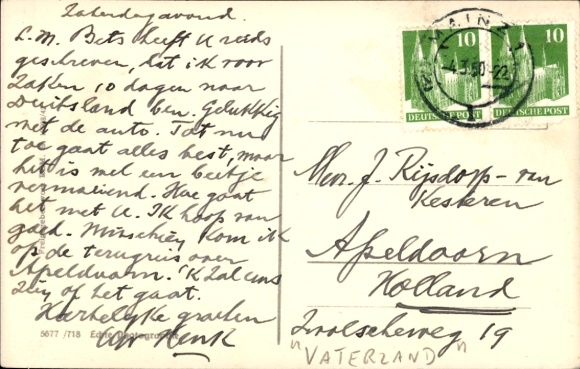 Zaterdagavond.
L.M. Bets heeft U reeds
geschreven, dat ik voor
zaken 10 dagen naar
Duitsland ben. Gelukkig
met de auto. Tot nu
toe gaat alles best, maar
het is wel een beetje
vermoeiend. Hoe gaat
het met U. Ik hoop van
goed. Misschien kom ik
op de terugreis over
Apeldoorn. 'k Zal eens
zien of het gaat.
Hartelijke groeten
Uw Henk
5677 /718 Echte Photographie
MAINZ 1
-4.3.50-22
10 10
DEUTSCHE POST DEUTSCHE POST
Mevr. J. Rijsdorp-van
Kesteren
Apeldoorn
Holland
Zwolscheweg 19
"VATERLAND"